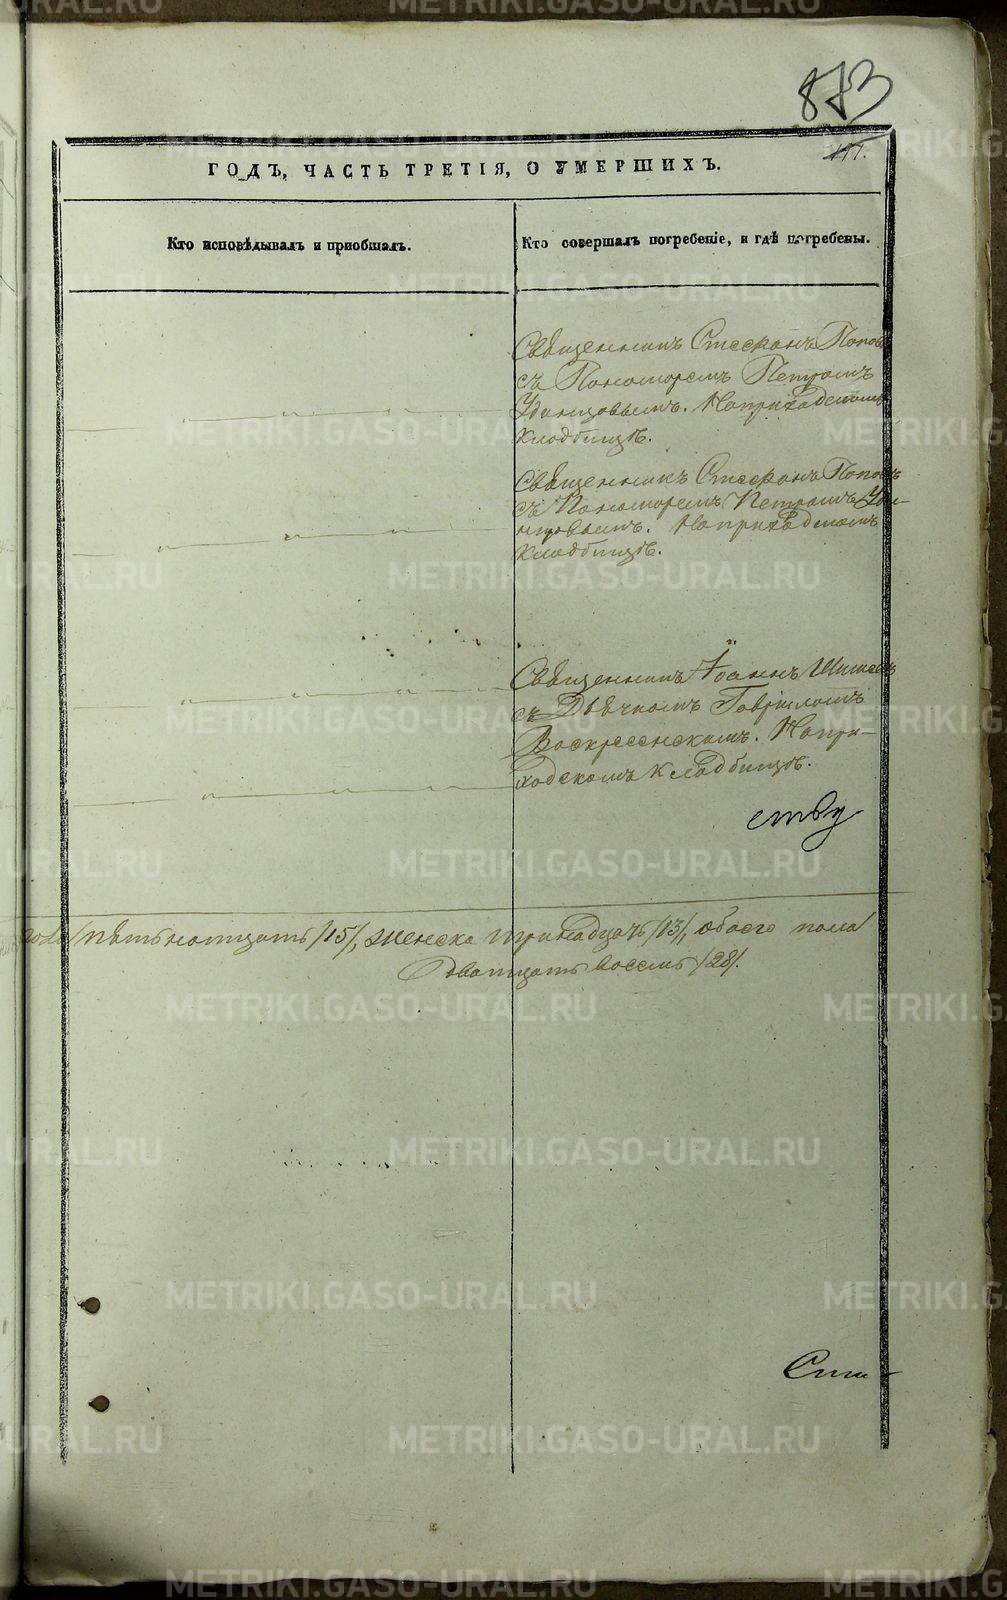 873
111.
ГОДЪ, ЧАСТЬ ТРЕТІЯ, О УМЕРШИХЪ.
Кто исповѣдывалъ и приобщалъ.
Кто совершалъ погребеніе, и гдѣ погребены.
Священникъ Стефанъ Попов
съ Пономаремъ Петромъ
Удинцовымъ. На приходскомъ
кладбищѣ.
Священникъ Стефанъ Поповъ
съ Пономаремъ Петромъ Уди-
нцовымъ. На приходскомъ
кладбищѣ.
Священникъ Іоаннъ
съ Дьячкомъ Гавріиломъ
Воскресенскимъ. На при-
ходскомъ кладбищѣ.
ству
года пятьнатцать /15/, женска тринадцать /13/, обоего пола
дватцать восемь /28/.
METRIKI.GASO-URAL.RU